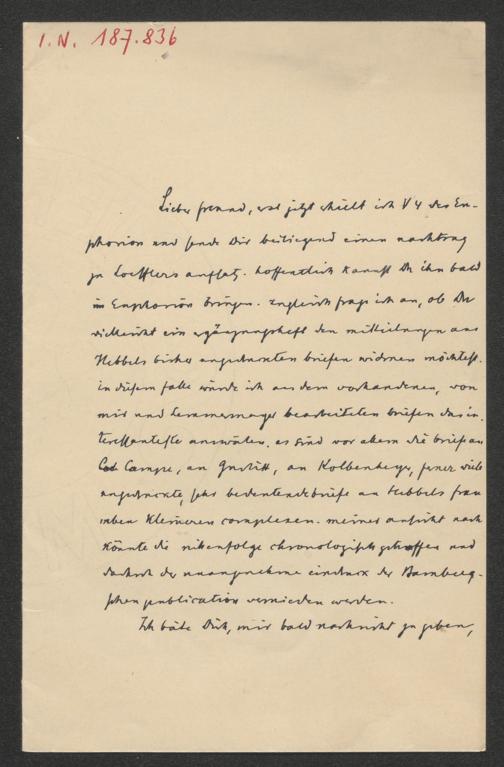 I. N. 187.836
Lieber freund, erst jetzt erhielt ich V 4 des Eu-
phorion und sende Dir beiliegend einen nachtrag
zu Loefflers aufsatz. hoffentlich kannst Du ihn bald
im Euphorion bringen. zugleich frage ich an, ob Du
vielleicht ein ergänzungsheft den mitteilungen aus
Hebbels bisher ungedruckten briefen widmen möchtest.
in diesem falle würde ich aus dem vorhandenen, von
mir und Lemmermayer bearbeiteten briefen das in-
teressanteste auswälen. es sind vor allem die briefe an
Campe, an Gurlitt, an Kolbenheyer, ferner viele
ungedruckte, sehr bedeutende briefe an Hebbels frau
neben kleineren complexen. meiner ansicht nach
könnte die reihenfolge chronologisch getroffen und
dadurch der unangenehme eindruck der Bamberg-
schen publication vermieden werden.
Ich bäte Dich, mir bald nachricht zu geben,